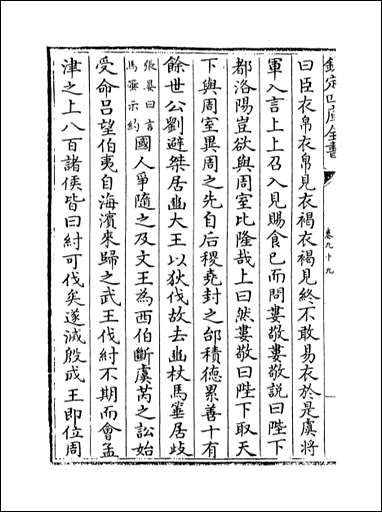 欽定四庫全書
卷九十九
曰臣衣帛衣帛見衣褐衣褐見終不敢易衣於是虞將
軍入言上上召入見賜食已而問婁敬婁敬說曰陛下
都洛陽豈欲與周室比隆哉上曰然婁敬曰陛下取天
下與周室異周之先自后稷堯封之邰積德累善十有
餘世公劉避桀居豳大王以狄伐故去豳杖馬箠居岐
張晏曰言馬箠示約國人爭隨之及文王為西伯斷虞芮之訟始
受命呂望伯夷自海濱來歸之武王伐紂不期而會孟
津之上八百諸侯皆曰紂可伐矣遂滅殷成王即位周